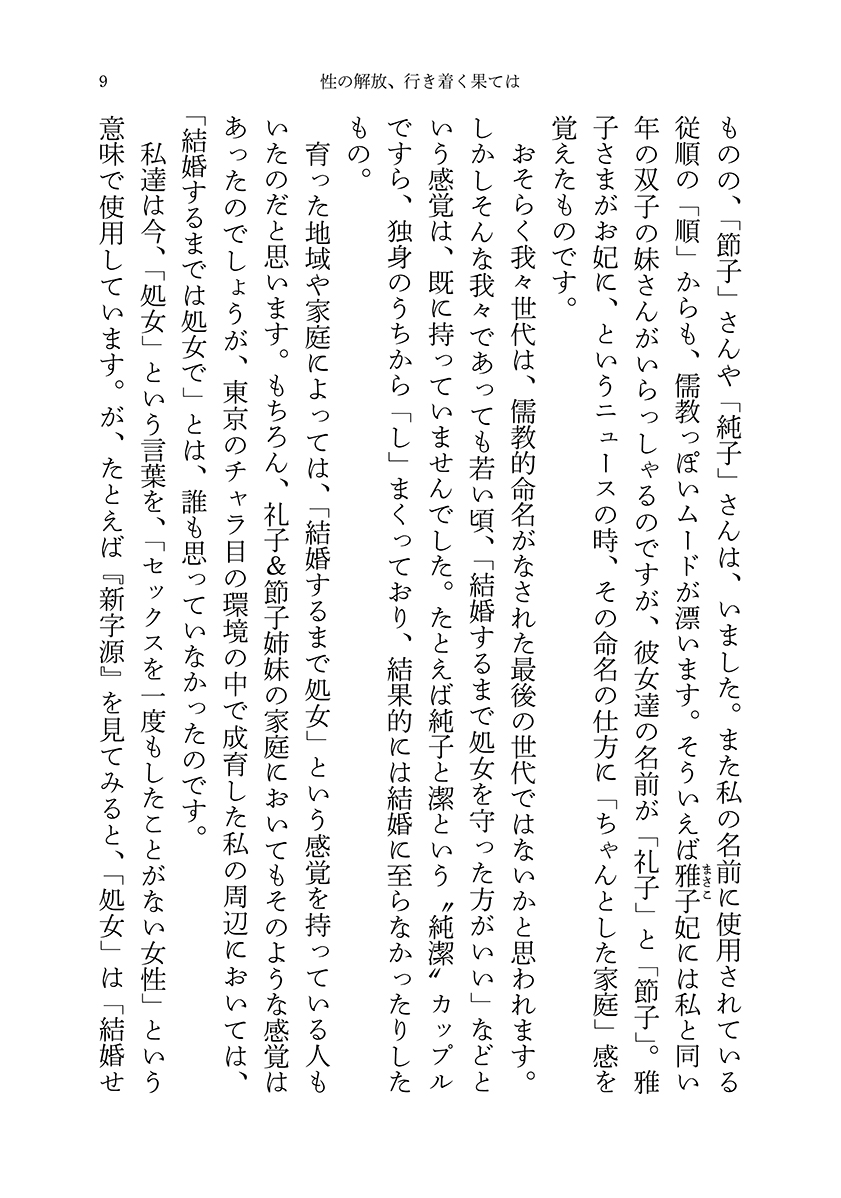 9
性の解放、行き着く果ては
ものの、「節子」さんや「純子」さんは、いました。また私の名前に使用されている
従順の「順」からも、儒教っぽいムードが漂います。そういえば雅子妃には私と同い
まさこ
年の双子の妹さんがいらっしゃるのですが、彼女達の名前が「礼子」と「節子」。雅
子さまがお妃に、というニュースの時、その命名の仕方に「ちゃんとした家庭」感を
覚えたものです。
おそらく我々世代は、儒教的命名がなされた最後の世代ではないかと思われます。
しかしそんな我々であっても若い頃、「結婚するまで処女を守った方がいい」などと
いう感覚は、既に持っていませんでした。たとえば純子と潔という〝純潔〟カップル
ですら、独身のうちから「し」まくっており、結果的には結婚に至らなかったりした
もの。
育った地域や家庭によっては、「結婚するまで処女」という感覚を持っている人も
いたのだと思います。もちろん、礼子&節子姉妹の家庭においてもそのような感覚は
あったのでしょうが、東京のチャラ目の環境の中で成育した私の周辺においては、
「結婚するまでは処女で」とは、誰も思っていなかったのです。
私達は今、「処女」という言葉を、「セックスを一度もしたことがない女性」という
意味で使用しています。が、たとえば『新字源』を見てみると、「処女」は「結婚せ